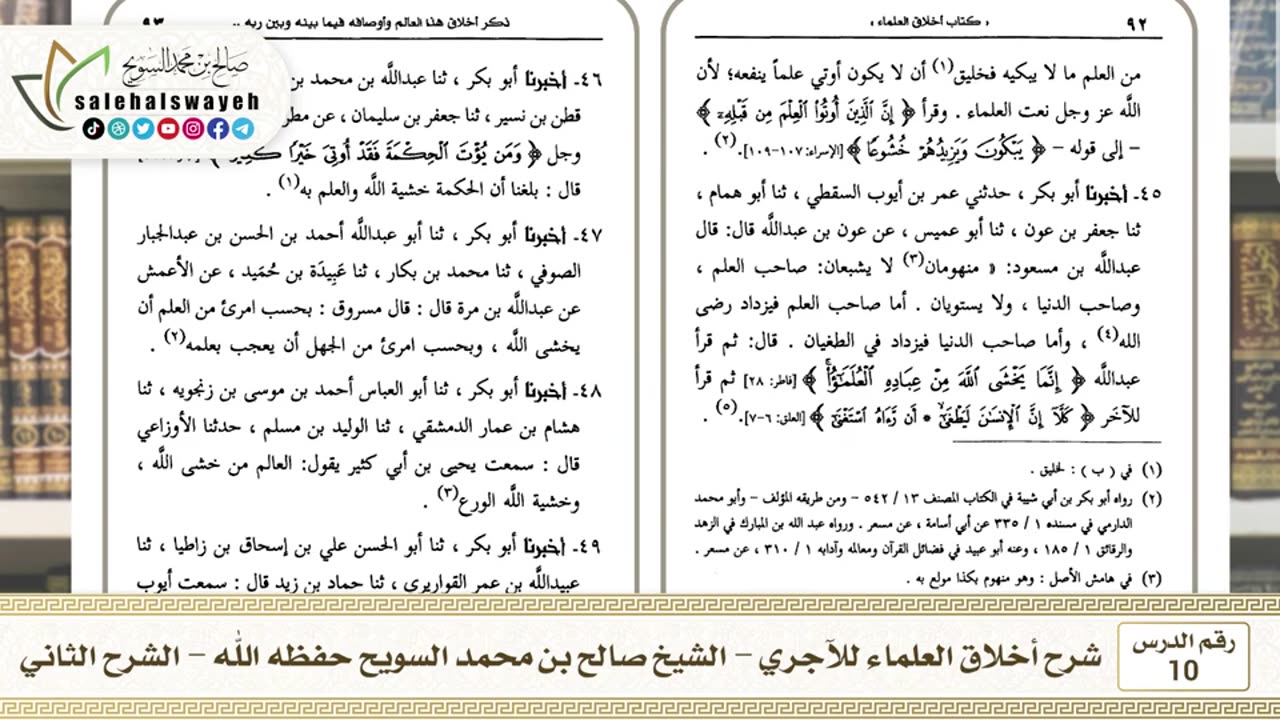 « كتاب أخلاق العلماء »
٩٢
من العلم ما لا يبكيه فخليق(١) أن لا يكون أوتي علماً ينفعه؛ لأن
اللَّه عز وجل نعت العلماء . وقرأ ﴿ إِنَّ ٱلَّذِينَ أُوتُوا۟ ٱلْعِلْمَ مِن قَبْلِهِۦٓ ﴾
- إلى قوله - ﴿ يَبْكُونَ وَيَزِيدُهُمْ خُشُوعًا ﴾ [الإسراء: ١٠٧-١٠٩].(٢) .
٤٥- أخبرنا أبو بكر ، حدثني عمر بن أيوب السقطي ، ثنا أبو همام ،
ثنا جعفر بن عون ، ثنا أبو عميس ، عن عون بن عبداللَّه قال: قال
عبداللَّه بن مسعود: « منهومان(٣) لا يشبعان: صاحب العلم ،
وصاحب الدنيا ، ولا يستويان . أما صاحب العلم فيزداد رضى
الله(٤) ، وأما صاحب الدنيا فيزداد في الطغيان . قال: ثم قرأ
عبداللَّه ﴿ إِنَّمَا يَخْشَى ٱللَّهَ مِنْ عِبَادِهِ ٱلْعُلَمَٰٓؤُا۟ ﴾ [فاطر: ٢٨] ثم قرأ
للآخر ﴿ كَلَّآ إِنَّ ٱلْإِنسَٰنَ لَيَطْغَىٰٓ * أَن رَّءَاهُ ٱسْتَغْنَىٰٓ ﴾ [العلق: ٦-٧].(٥) .
(١) في ( ب ) : لخليق .
(٢) رواه أبو بكر بن أبي شيبة في الكتاب المصنف ١٣ / ٥٤٢ - ومن طريقه المؤلف - وأبو محمد
الدارمي في مسنده ١ / ٣٣٥ عن أبي أسامة ، عن مسعر . ورواه عبد الله بن المبارك في الزهد
والرقائق ١ / ١٨٥ ، وعنه أبو عبيد في فضائل القرآن ومعالمه وآدابه ١ / ٣١٠ ، عن مسعر .
(٣) في هامش الأصل : وهو منهوم بكذا مولع به .
ذكر أخلاق هذا العالم وأوصافه فيما بينه وبين ربه ..
٩٣
٤٦- أخبرنا أبو بكر ، ثنا عبداللَّه بن محمد بن
قطن بن نسير ، ثنا جعفر بن سليمان ، عن مطر
وجل ﴿ وَمَن يُؤْتَ ٱلْحِكْمَةَ فَقَدْ أُوتِىَ خَيْرًا كَثِيرًا ﴾
قال : بلغنا أن الحكمة خشية اللَّه والعلم به(١) .
٤٧- أخبرنا أبو بكر ، ثنا أبو عبداللَّه أحمد بن الحسن بن عبدالجبار
الصوفي ، ثنا محمد بن بكار ، ثنا عَبِيدَة بن حُمَيد ، عن الأعمش
عن عبداللَّه بن مرة قال : قال مسروق : بحسب امرئ من العلم أن
يخشى اللَّه ، وبحسب امرئ من الجهل أن يعجب بعلمه(٢) .
٤٨- أخبرنا أبو بكر ، ثنا أبو العباس أحمد بن موسى بن زنجويه ، ثنا
هشام بن عمار الدمشقي ، ثنا الوليد بن مسلم ، حدثنا الأوزاعي
قال : سمعت يحيى بن أبي كثير يقول: العالم من خشى اللَّه ،
وخشية اللَّه الورع(٣) .
٤٩- أخبرنا أبو بكر ، ثنا أبو الحسن علي بن إسحاق بن زاطيا ، ثنا
عبيداللَّه بن عمر القواريري ، ثنا حماد بن زيد قال : سمعت أيوب
صالح بن محمد السويح
salehalswayeh
رقم الدرس
10
شرح أخلاق العلماء للآجري - الشيخ صالح بن محمد السويح حفظه الله - الشرح الثاني